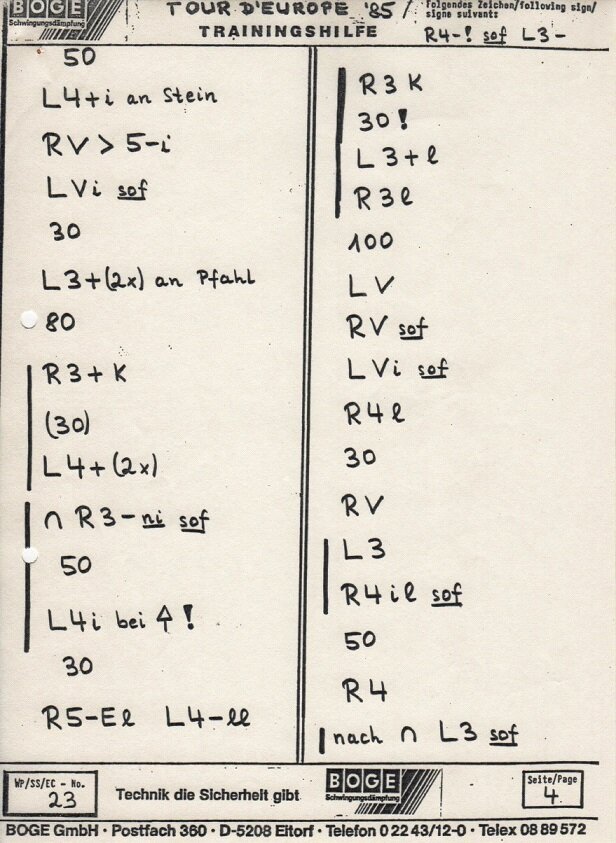 BOGE
Schwingungsdämpfung
TOUR D'EUROPE '85
TRAININGSHILFE
Folgendes Zeichen/following sign/
signe suivants
R4-! sof L3-
50
L4+i an Stein
RV > 5-i
LVi sof
30
L3+(2x) an Pfahl
80
R3+K
(30)
L4+(2x)
∩ R3-ni sof
50
L4i bei !
30
R5-El L4-ll
R3K
30!
L3+l
R3l
100
LV
RV sof
LVi sof
R4l
30
RV
L3
R4il sof
50
R4
nach ∩ L3 sof
WP/SS/EC - No.
23
Technik die Sicherheit gibt
BOGE
Schwingungsdämpfung
Seite/Page
4
BOGE GmbH · Postfach 360 · D-5208 Eitorf · Telefon 0 22 43/12-0 · Telex 08 89 572